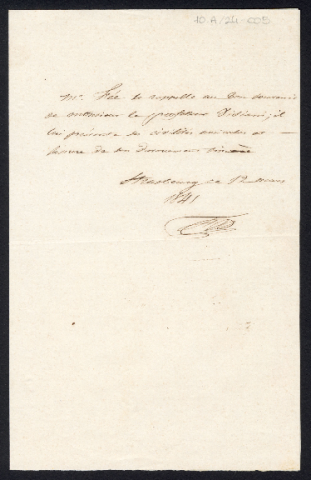 10.A.24.005
Mr. Fée se rappelle au bon souvenir
de monsieur le professeur Viviani; il
lui présente ses civilités amicales et
de son dévouement sincère
Strasbourg ce 12 mars
1841